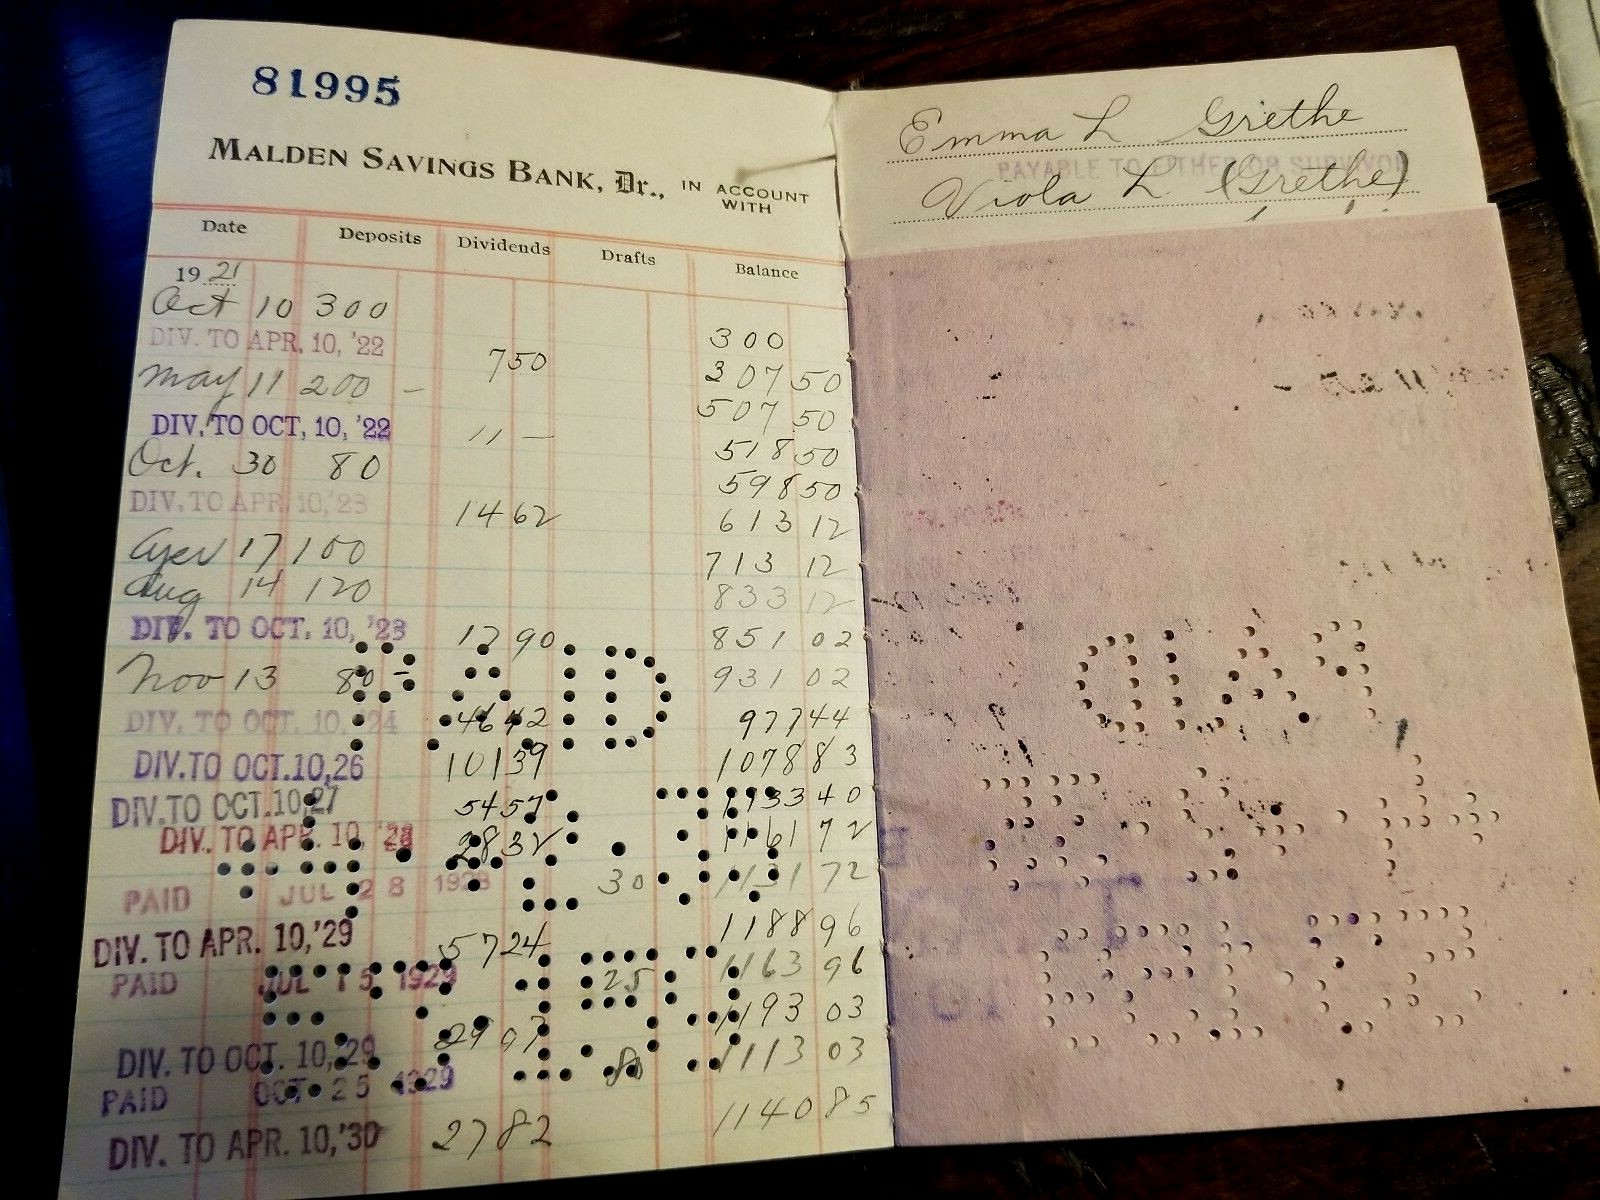 81995
MALDEN SAVINGS BANK, Dr., IN ACCOUNT WITH
Emma L Grethe
PAYABLE TO EITHER OR SURVIVOR
Viola L. (Grethe)
Date Deposits Dividends Drafts Balance
19 21
Oct 10 300 300
DIV. TO APR. 10, '22 7 50 307 50
May 11 200 - 507 50
DIV. TO OCT. 10, '22 11 — 518 50
Oct. 30 80 598 50
DIV. TO APR. 10, '23 14 62 613 12
Apr 17 100 713 12
Aug 14 120 833 12
DIV. TO OCT. 10, '23 17 90 851 02
Nov 13 80 - 931 02
DIV. TO OCT. 10, '24 46 42 977 44
DIV. TO OCT. 10, 26 101 39 1078 83
DIV. TO OCT. 10, 27 54 57 1133 40
DIV. TO APR. 10, '28 28 32 1161 72
PAID JUL 28 1928 30 1131 72
DIV. TO APR. 10, '29 57 24 1188 96
PAID JUL 15 1929 25 1163 96
DIV. TO OCT. 10, 29 29 07 1193 03
PAID OCT 25 1929 80 1113 03
DIV. TO APR. 10, '30 27 82 1140 85
PAID